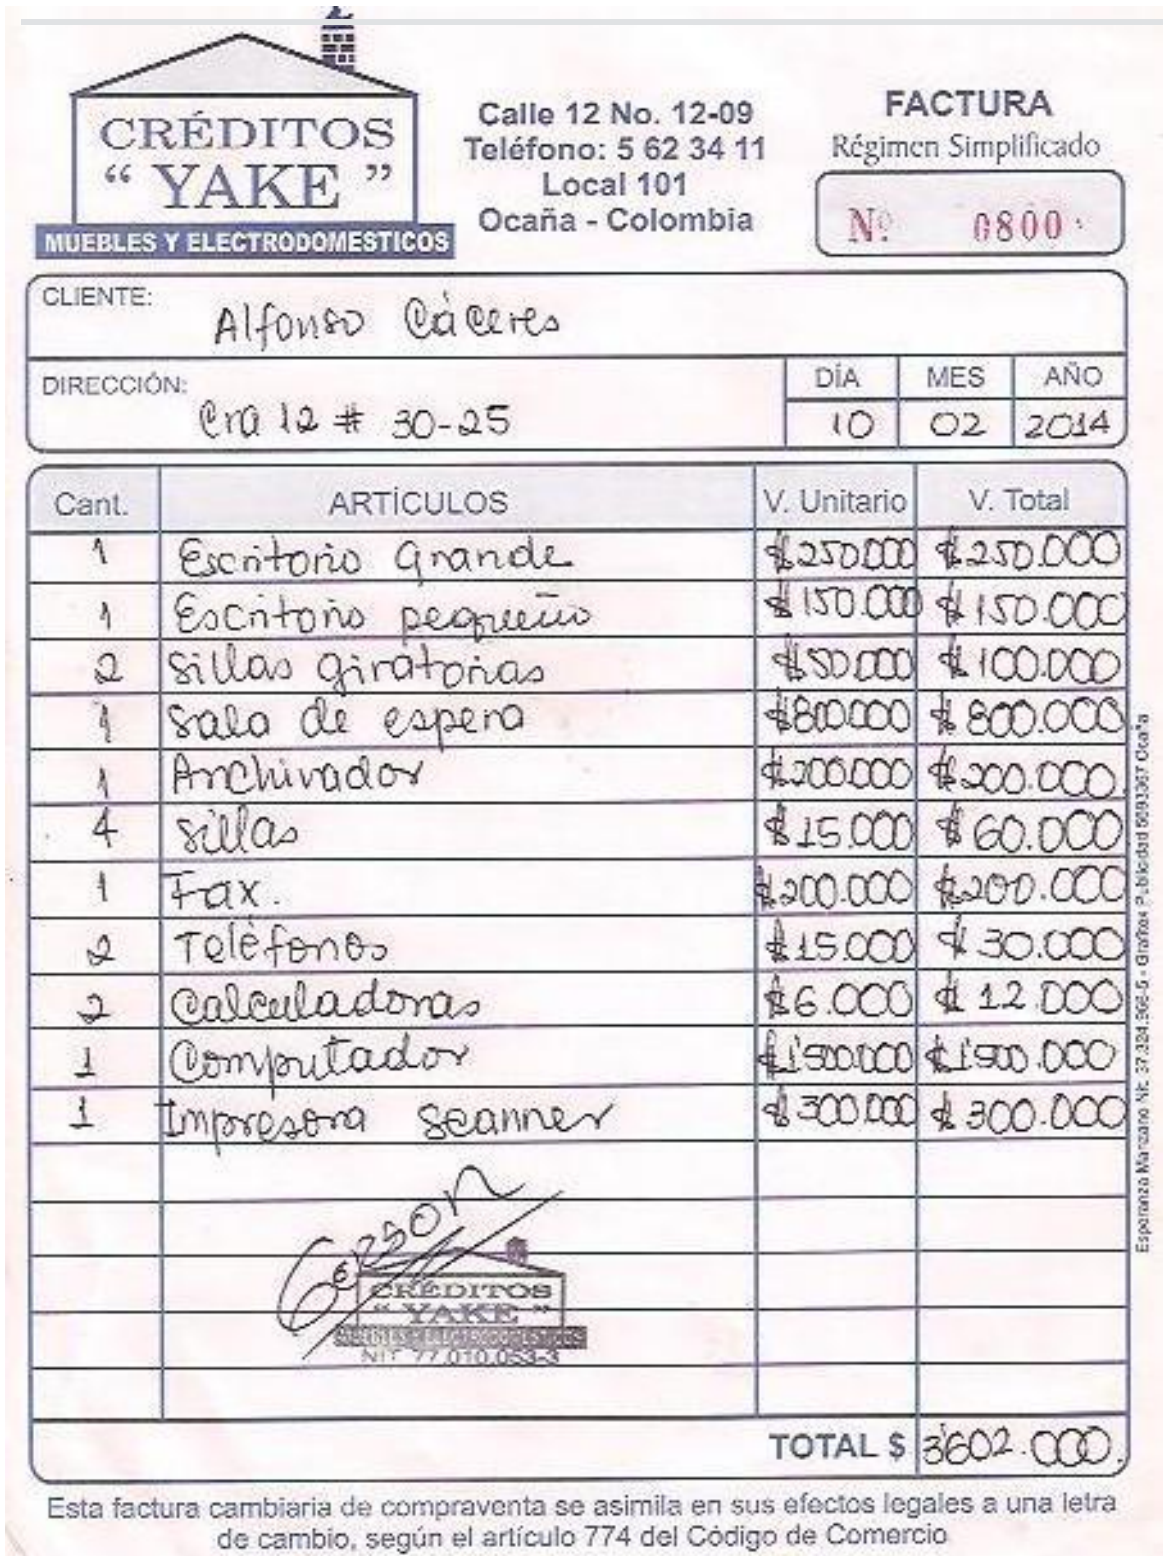 CRÉDITOS
“ YAKE ”
MUEBLES Y ELECTRODOMESTICOS
Calle 12 No. 12-09
Teléfono: 5 62 34 11
Local 101
Ocaña - Colombia
FACTURA
Régimen Simplificado
Nº 0800
CLIENTE: Alfonso Cáceres
DIRECCIÓN: Cra 12 # 30-25
DÍA MES AÑO
10 02 2014
Cant. ARTÍCULOS V. Unitario V. Total
1 Escritorio grande $250.000 $250.000
1 Escritorio pequeño $150.000 $150.000
2 Sillas giratorias $50.000 $100.000
1 Sala de espera $800.000 $800.000
1 Archivador $200.000 $200.000
4 Sillas $15.000 $60.000
1 Fax. $200.000 $200.000
2 Teléfonos $15.000 $30.000
2 Calculadoras $6.000 $12.000
1 Computador $1'500.000 $1'500.000
1 Impresora Scanner $300.000 $300.000
Gerson
CRÉDITOS
“ YAKE ”
MUEBLES Y ELECTRODOMESTICOS
NIT. 77.010.053-3
TOTAL $ 3'602.000
Esta factura cambiaria de compraventa se asimila en sus efectos legales a una letra
de cambio, según el artículo 774 del Código de Comercio
Esperanza Manzano Nit. 37.324.966-5 - Grafitex Publicidad 5693367 Ocaña